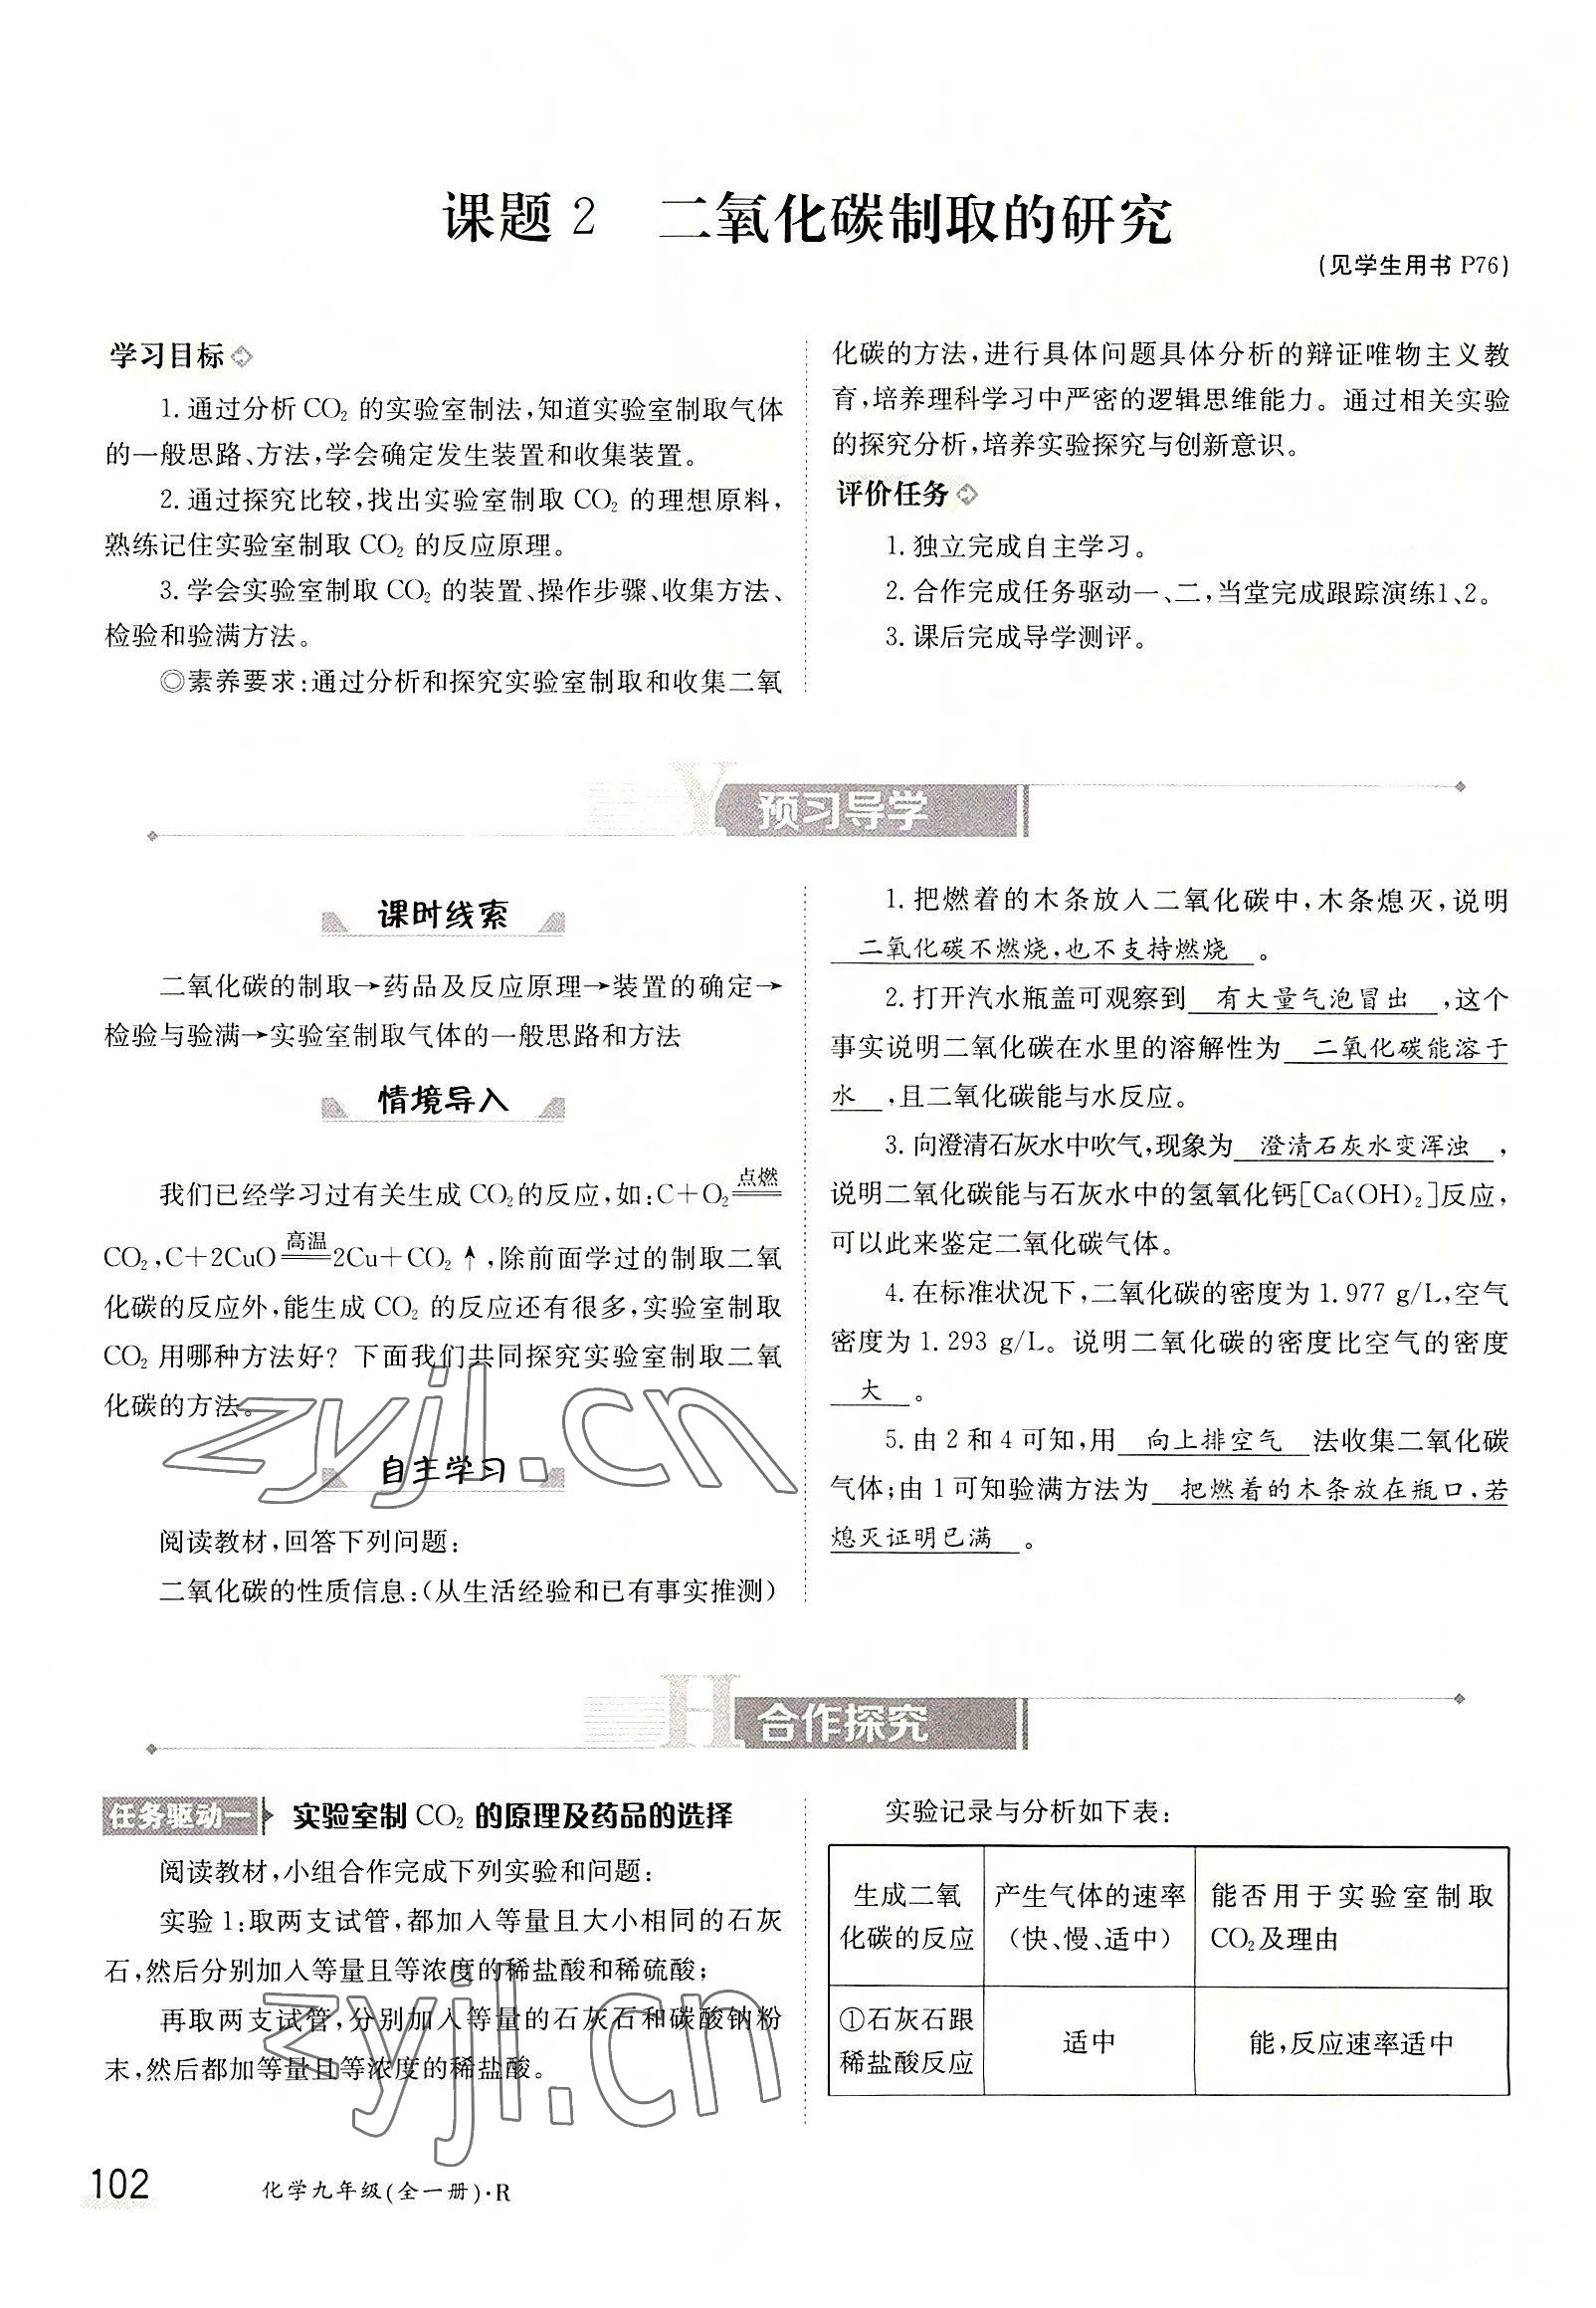 课题 2 二氧化碳制取的研究
(见学生用书 P76)
学习目标
1. 通过分析 CO₂ 的实验室制法,知道实验室制取气体
的一般思路、方法,学会确定发生装置和收集装置。
2. 通过探究比较,找出实验室制取 CO₂ 的理想原料,
熟练记住实验室制取 CO₂ 的反应原理。
3. 学会实验室制取 CO₂ 的装置、操作步骤、收集方法、
检验和验满方法。
◎素养要求:通过分析和探究实验室制取和收集二氧
化碳的方法,进行具体问题具体分析的辩证唯物主义教
育,培养理科学习中严密的逻辑思维能力。通过相关实验
的探究分析,培养实验探究与创新意识。
评价任务
1. 独立完成自主学习。
2. 合作完成任务驱动一、二,当堂完成跟踪演练1、2。
3. 课后完成导学测评。
Y 预习导学
课时线索
二氧化碳的制取→药品及反应原理→装置的确定→
检验与验满→实验室制取气体的一般思路和方法
情境导入
我们已经学习过有关生成 CO₂的反应,如:C+O₂ 点燃
CO₂,C+2CuO 高温 2Cu+CO₂↑,除前面学过的制取二氧
化碳的反应外,能生成 CO₂ 的反应还有很多,实验室制取
CO₂ 用哪种方法好? 下面我们共同探究实验室制取二氧
化碳的方法。
自主学习
阅读教材,回答下列问题:
二氧化碳的性质信息:(从生活经验和已有事实推测)
1. 把燃着的木条放入二氧化碳中,木条熄灭,说明
二氧化碳不燃烧,也不支持燃烧 。
2. 打开汽水瓶盖可观察到 有大量气泡冒出 ,这个
事实说明二氧化碳在水里的溶解性为 二氧化碳能溶于
水 ,且二氧化碳能与水反应。
3. 向澄清石灰水中吹气,现象为 澄清石灰水变浑浊 ,
说明二氧化碳能与石灰水中的氢氧化钙[Ca(OH)₂]反应,
可以此来鉴定二氧化碳气体。
4. 在标准状况下,二氧化碳的密度为 1.977 g/L,空气
密度为 1.293 g/L。说明二氧化碳的密度比空气的密度
大 。
5. 由 2 和 4 可知,用 向上排空气 法收集二氧化碳
气体;由 1 可知验满方法为 把燃着的木条放在瓶口,若
熄灭证明已满 。
H 合作探究
任务驱动一 实验室制 CO₂ 的原理及药品的选择
阅读教材,小组合作完成下列实验和问题:
实验 1:取两支试管,都加入等量且大小相同的石灰
石,然后分别加入等量且等浓度的稀盐酸和稀硫酸;
再取两支试管,分别加入等量的石灰石和碳酸钠粉
末,然后都加等量且等浓度的稀盐酸。
实验记录与分析如下表:
生成二氧 产生气体的速率 能否用于实验室制取
化碳的反应 (快、慢、适中) CO₂及理由
①石灰石跟
稀盐酸反应 适中 能,反应速率适中
102 化学九年级(全一册)·R
zyjl.cn
zyjl.cn